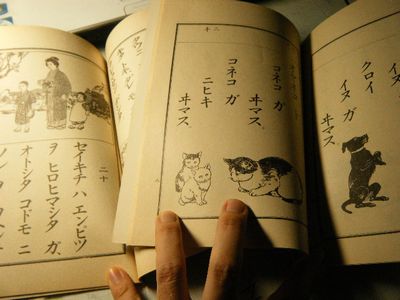 クロイ
イヌ ガ
ヰマス、
コネコ ガ
ヰマス、
コネコ ガ
ニヒキ
ヰマス、
二十
セイキチ ハ エンピツ
ヲ ヒロヒマシタ ガ、
オトシタ コドモ ニ